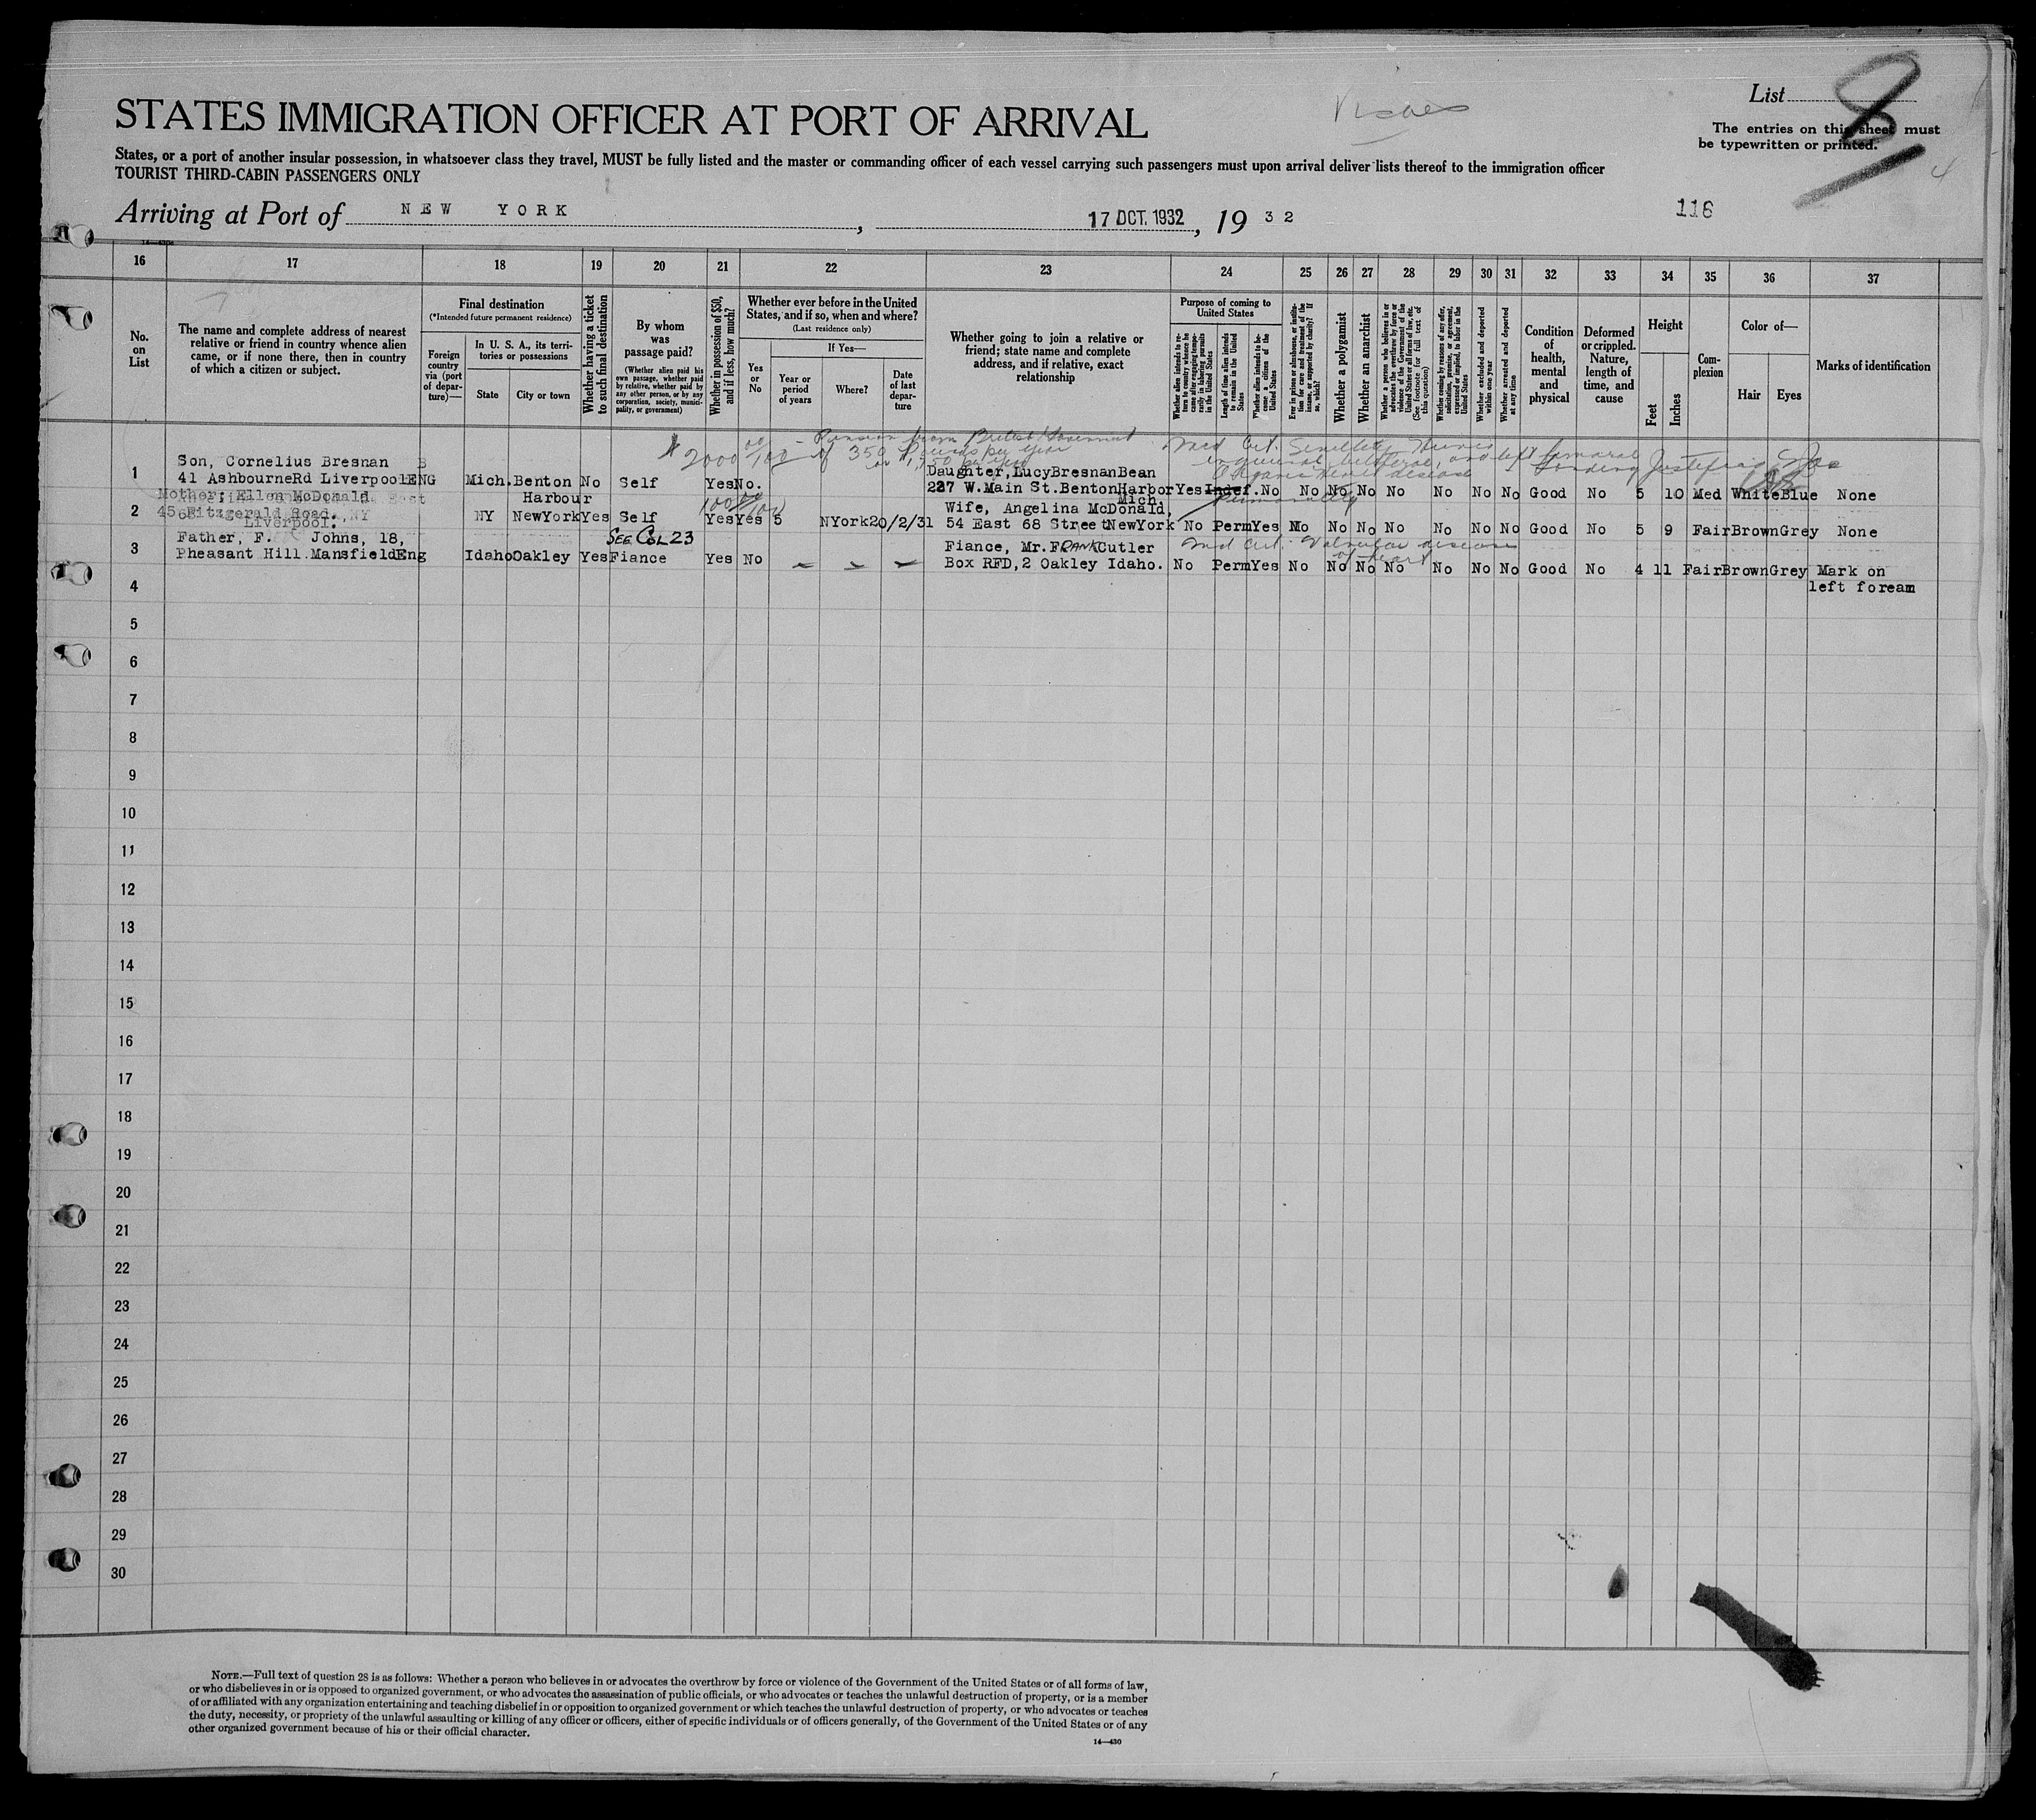 List 8
STATES IMMIGRATION OFFICER AT PORT OF ARRIVAL
The entries on this sheet must
be typewritten or printed.
States, or a port of another insular possession, in whatsoever class they travel, MUST be fully listed and the master or commanding officer of each vessel carrying such passengers must upon arrival deliver lists thereof to the immigration officer
TOURIST THIRD-CABIN PASSENGERS ONLY
4
Arriving at Port of NEW YORK, 17 OCT. 1932, 19 32
116
16 17 18 19 20 21 22 23 24 25 26 27 28 29 30 31 32 33 34 35 36 37
No. on List
The name and complete address of nearest relative or friend in country whence alien came, or if none there, then in country of which a citizen or subject.
Final destination
(*Intended future permanent residence)
Foreign country via (port of departure)—
In U. S. A., its territories or possessions
State
City or town
Whether having a ticket to such final destination
By whom was passage paid?
(Whether alien paid his own passage, whether paid by relative, whether paid by any other person, or by any corporation, society, municipality, or government)
Whether in possession of $50, and if less, how much?
Whether ever before in the United States, and if so, when and where?
(Last residence only)
Yes or No
If Yes—
Year or period of years
Where?
Date of last departure
Whether going to join a relative or friend; state name and complete address, and if relative, exact relationship
Purpose of coming to United States
Whether alien intends to return to country whence he came after engaging temporarily in laboring pursuits in the United States
Length of time alien intends to remain in the United States
Whether alien intends to become a citizen of the United States
Ever in prison or almshouse, or institution for care and treatment of the insane, or supported by charity? If so, which?
Whether a polygamist
Whether an anarchist
Whether a person who believes in or advocates the overthrow by force or violence of the Government of the United States or all forms of law, etc. (See footnote for full text of this question)
Whether coming by reason of any offer, solicitation, promise, or agreement, expressed or implied, to labor in the United States
Whether excluded and deported within one year
Whether arrested and deported at any time
Condition of health, mental and physical
Deformed or crippled. Nature, length of time, and cause
Height
Feet
Inches
Complexion
Color of—
Hair
Eyes
Marks of identification
$2000 00/100 - Pension from British Government of 350 Pounds per year
Med Cert. Senility, Hernia
inguinal bilateral, and left femoral
Organic Heart disease
1 Son, Cornelius Bresnan
41 AshbourneRd LiverpoolENG Mich. Benton Harbour No Self Yes No. Daughter, LucyBresnanBean
227 W.Main St.BentonHarbor Mich. Yes Indef. No No No No No No No No Good No 5 10 Med White Blue None
Permanently
100 00/100
2 Mother, Ellen McDonald
45 Fitzgerald Road.,
Liverpool. NY NewYork Yes Self Yes Yes 5 NYork 20/2/31 Wife, Angelina McDonald,
54 East 68 Street NewYork No Perm Yes No No No No No No No Good No 5 9 Fair Brown Grey None
SEE COL 23
Med Cert. Valvular disease of heart
3 Father, F. Johns, 18,
Pheasant Hill Mansfield Eng Idaho Oakley Yes Fiance Yes No Fiance, Mr. FRANK Cutler
Box RFD,2 Oakley Idaho. No Perm Yes No No No No No No No Good No 4 11 Fair Brown Grey Mark on
left foream
4
5
6
7
8
9
10
11
12
13
14
15
16
17
18
19
20
21
22
23
24
25
26
27
28
29
30
NOTE.—Full text of question 28 is as follows: Whether a person who believes in or advocates the overthrow by force or violence of the Government of the United States or of all forms of law,
or who disbelieves in or is opposed to organized government, or who advocates the assassination of public officials, or who advocates or teaches the unlawful destruction of property, or is a member
of or affiliated with any organization entertaining and teaching disbelief in or opposition to organized government or which teaches the unlawful destruction of property, or who advocates or teaches
the duty, necessity, or propriety of the unlawful assaulting or killing of any officer or officers, either of specific individuals or of officers generally, of the Government of the United States or of any
other organized government because of his or their official character.
14—430